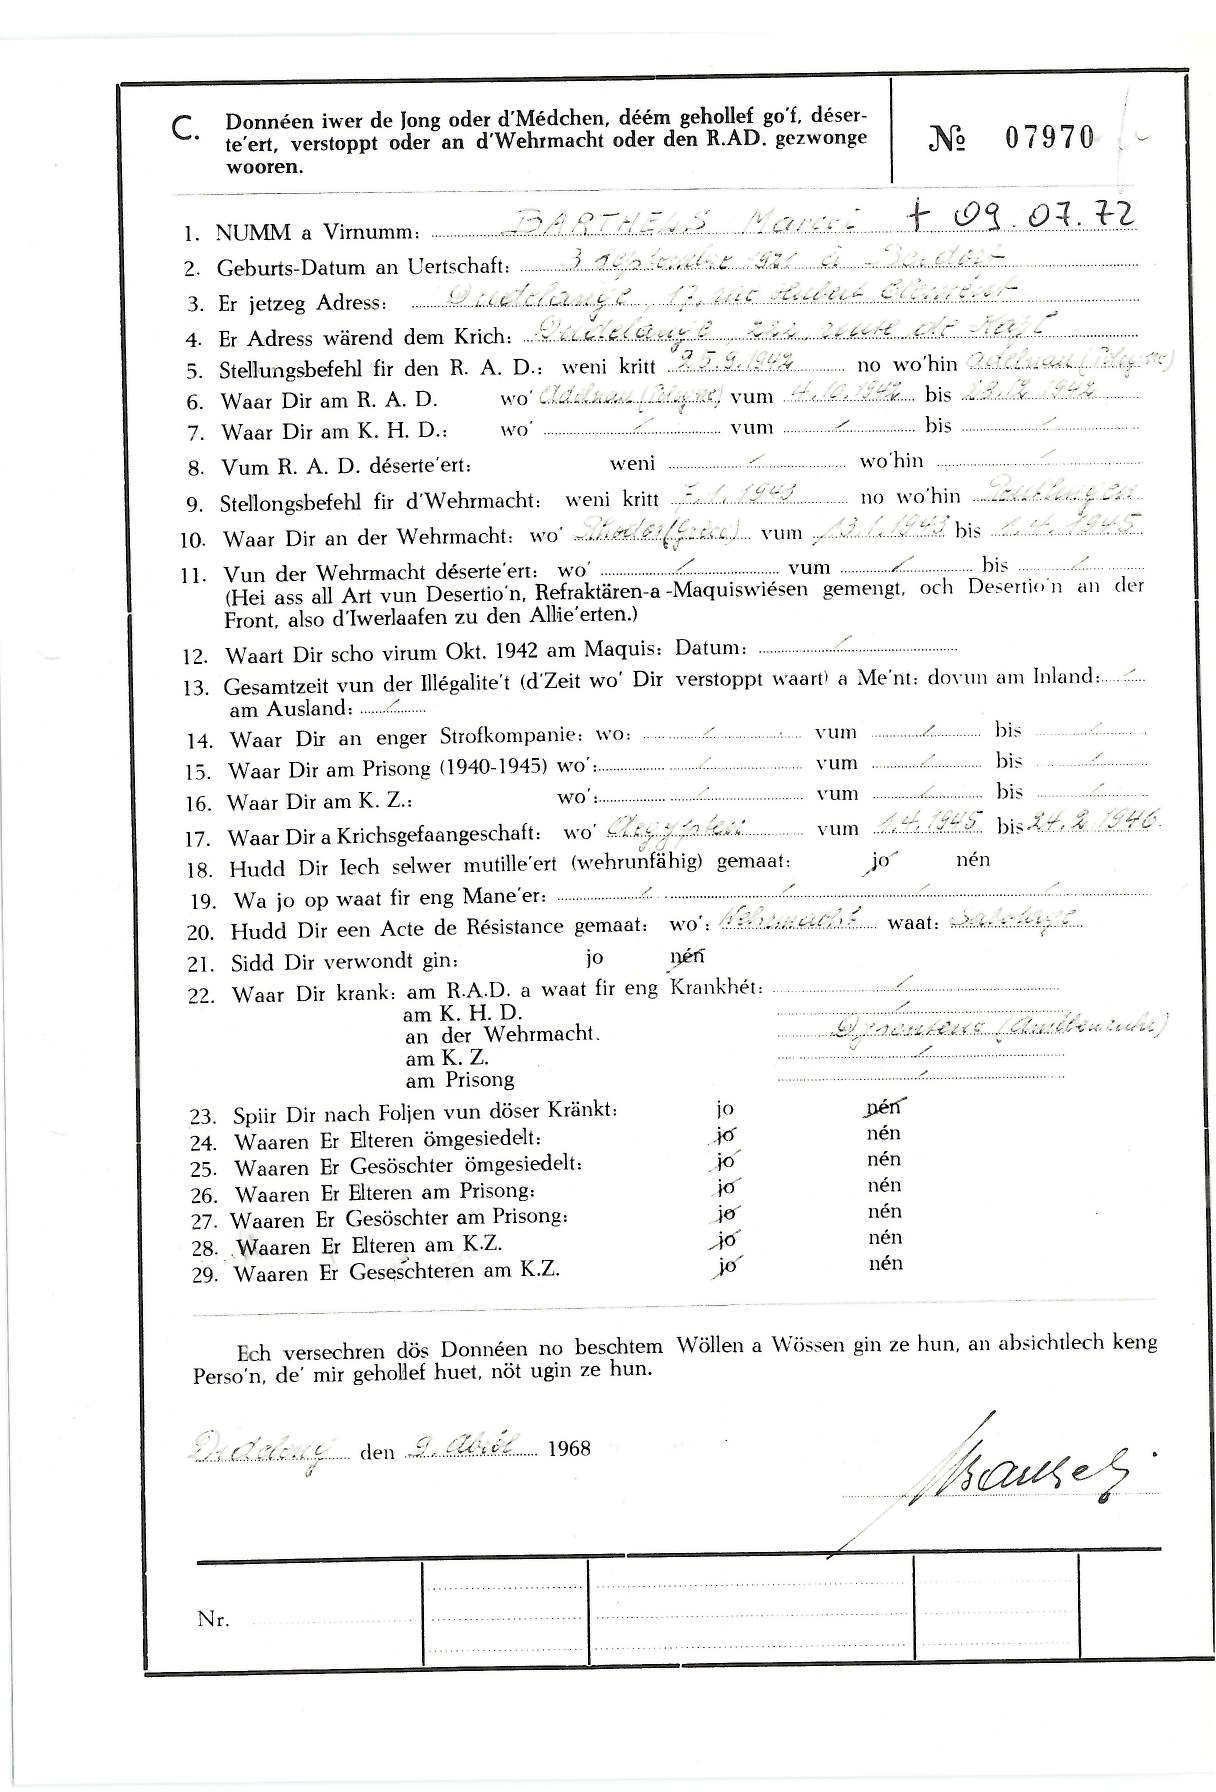 C. Donnéen iwer de Jong oder d'Médchen, déém gehollef go'f, déser-
te'ert, verstoppt oder an d'Wehrmacht oder den R.AD. gezwonge
wooren.
№ 07970
1. NUMM a Virnumm: BARTHELS Marcel + 09.07.72
2. Geburts-Datum an Uertschaft: 3 septembre 1921 à
3. Er jetzeg Adress: Dudelange, 17, rue Hubert Clement
4. Er Adress wärend dem Krich: Dudelange, route de Kayl
5. Stellungsbefehl fir den R. A. D.: weni kritt 25.9.1942 no wo'hin Adelnau (Pologne)
6. Waar Dir am R. A. D. wo' Adelnau (Pologne) vum 4.10.1942 bis 23.12 1942
7. Waar Dir am K. H. D.: wo' / vum / bis /
8. Vum R. A. D. déserte'ert: weni / wo'hin /
9. Stellongsbefehl fir d'Wehrmacht: weni kritt 7.1.1943 no wo'hin
10. Waar Dir an der Wehrmacht: wo' vum 13.1.1943 bis 1.4.1945
11. Vun der Wehrmacht déserte'ert: wo' / vum / bis /
(Hei ass all Art vun Desertio'n, Refraktären-a -Maquiswiésen gemengt, och Desertio'n an der
Front, also d'Iwerlaafen zu den Allie'erten.)
12. Waart Dir scho virum Okt. 1942 am Maquis: Datum: /
13. Gesamtzeit vun der Illégalite't (d'Zeit wo' Dir verstoppt waart) a Me'nt: dovun am Inland: /
am Ausland: /
14. Waar Dir an enger Strofkompanie: wo: / vum / bis /
15. Waar Dir am Prisong (1940-1945) wo': / vum / bis /
16. Waar Dir am K. Z.: wo': / vum / bis /
17. Waar Dir a Krichsgefaangeschaft: wo' Aegypten vum 1.4.1945 bis 24.2.1946.
18. Hudd Dir Iech selwer mutille'ert (wehrunfähig) gemaat: jo nén
19. Wa jo op waat fir eng Mane'er: / / / /
20. Hudd Dir een Acte de Résistance gemaat: wo': Wehrmacht waat: Sabotage
21. Sidd Dir verwondt gin: jo nén
22. Waar Dir krank: am R.A.D. a waat fir eng Krankhét: /
am K. H. D. /
an der Wehrmacht. Dysenterie (Amöbenruhr)
am K. Z. /
am Prisong /
23. Spiir Dir nach Foljen vun döser Kränkt: jo nén
24. Waaren Er Elteren ömgesiedelt: jo nén
25. Waaren Er Gesöschter ömgesiedelt: jo nén
26. Waaren Er Elteren am Prisong: jo nén
27. Waaren Er Gesöschter am Prisong: jo nén
28. Waaren Er Elteren am K.Z. jo nén
29. Waaren Er Geseschteren am K.Z. jo nén
Ech versechren dös Donnéen no beschtem Wöllen a Wössen gin ze hun, an absichtlech keng
Perso'n, de' mir gehollef huet, nöt ugin ze hun.
Dideleng den 9. Abrël 1968
Nr.